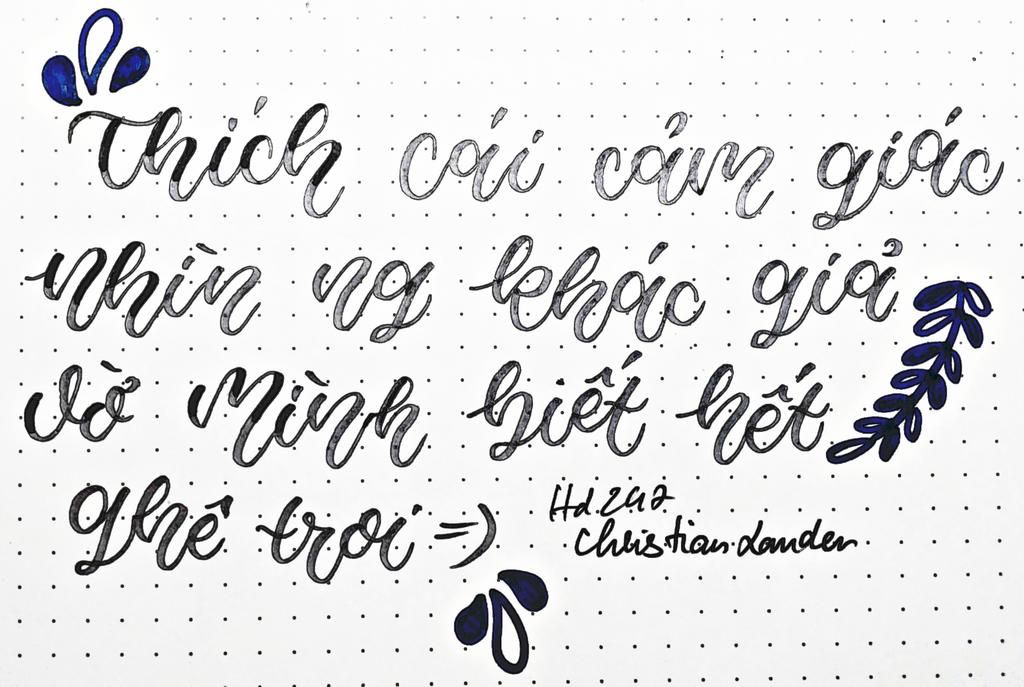 Thích cái cảm giác
nhìn ng khác giả
vờ mình biết hết
Ghê trơi =)
Hd.242
Christian.Landen